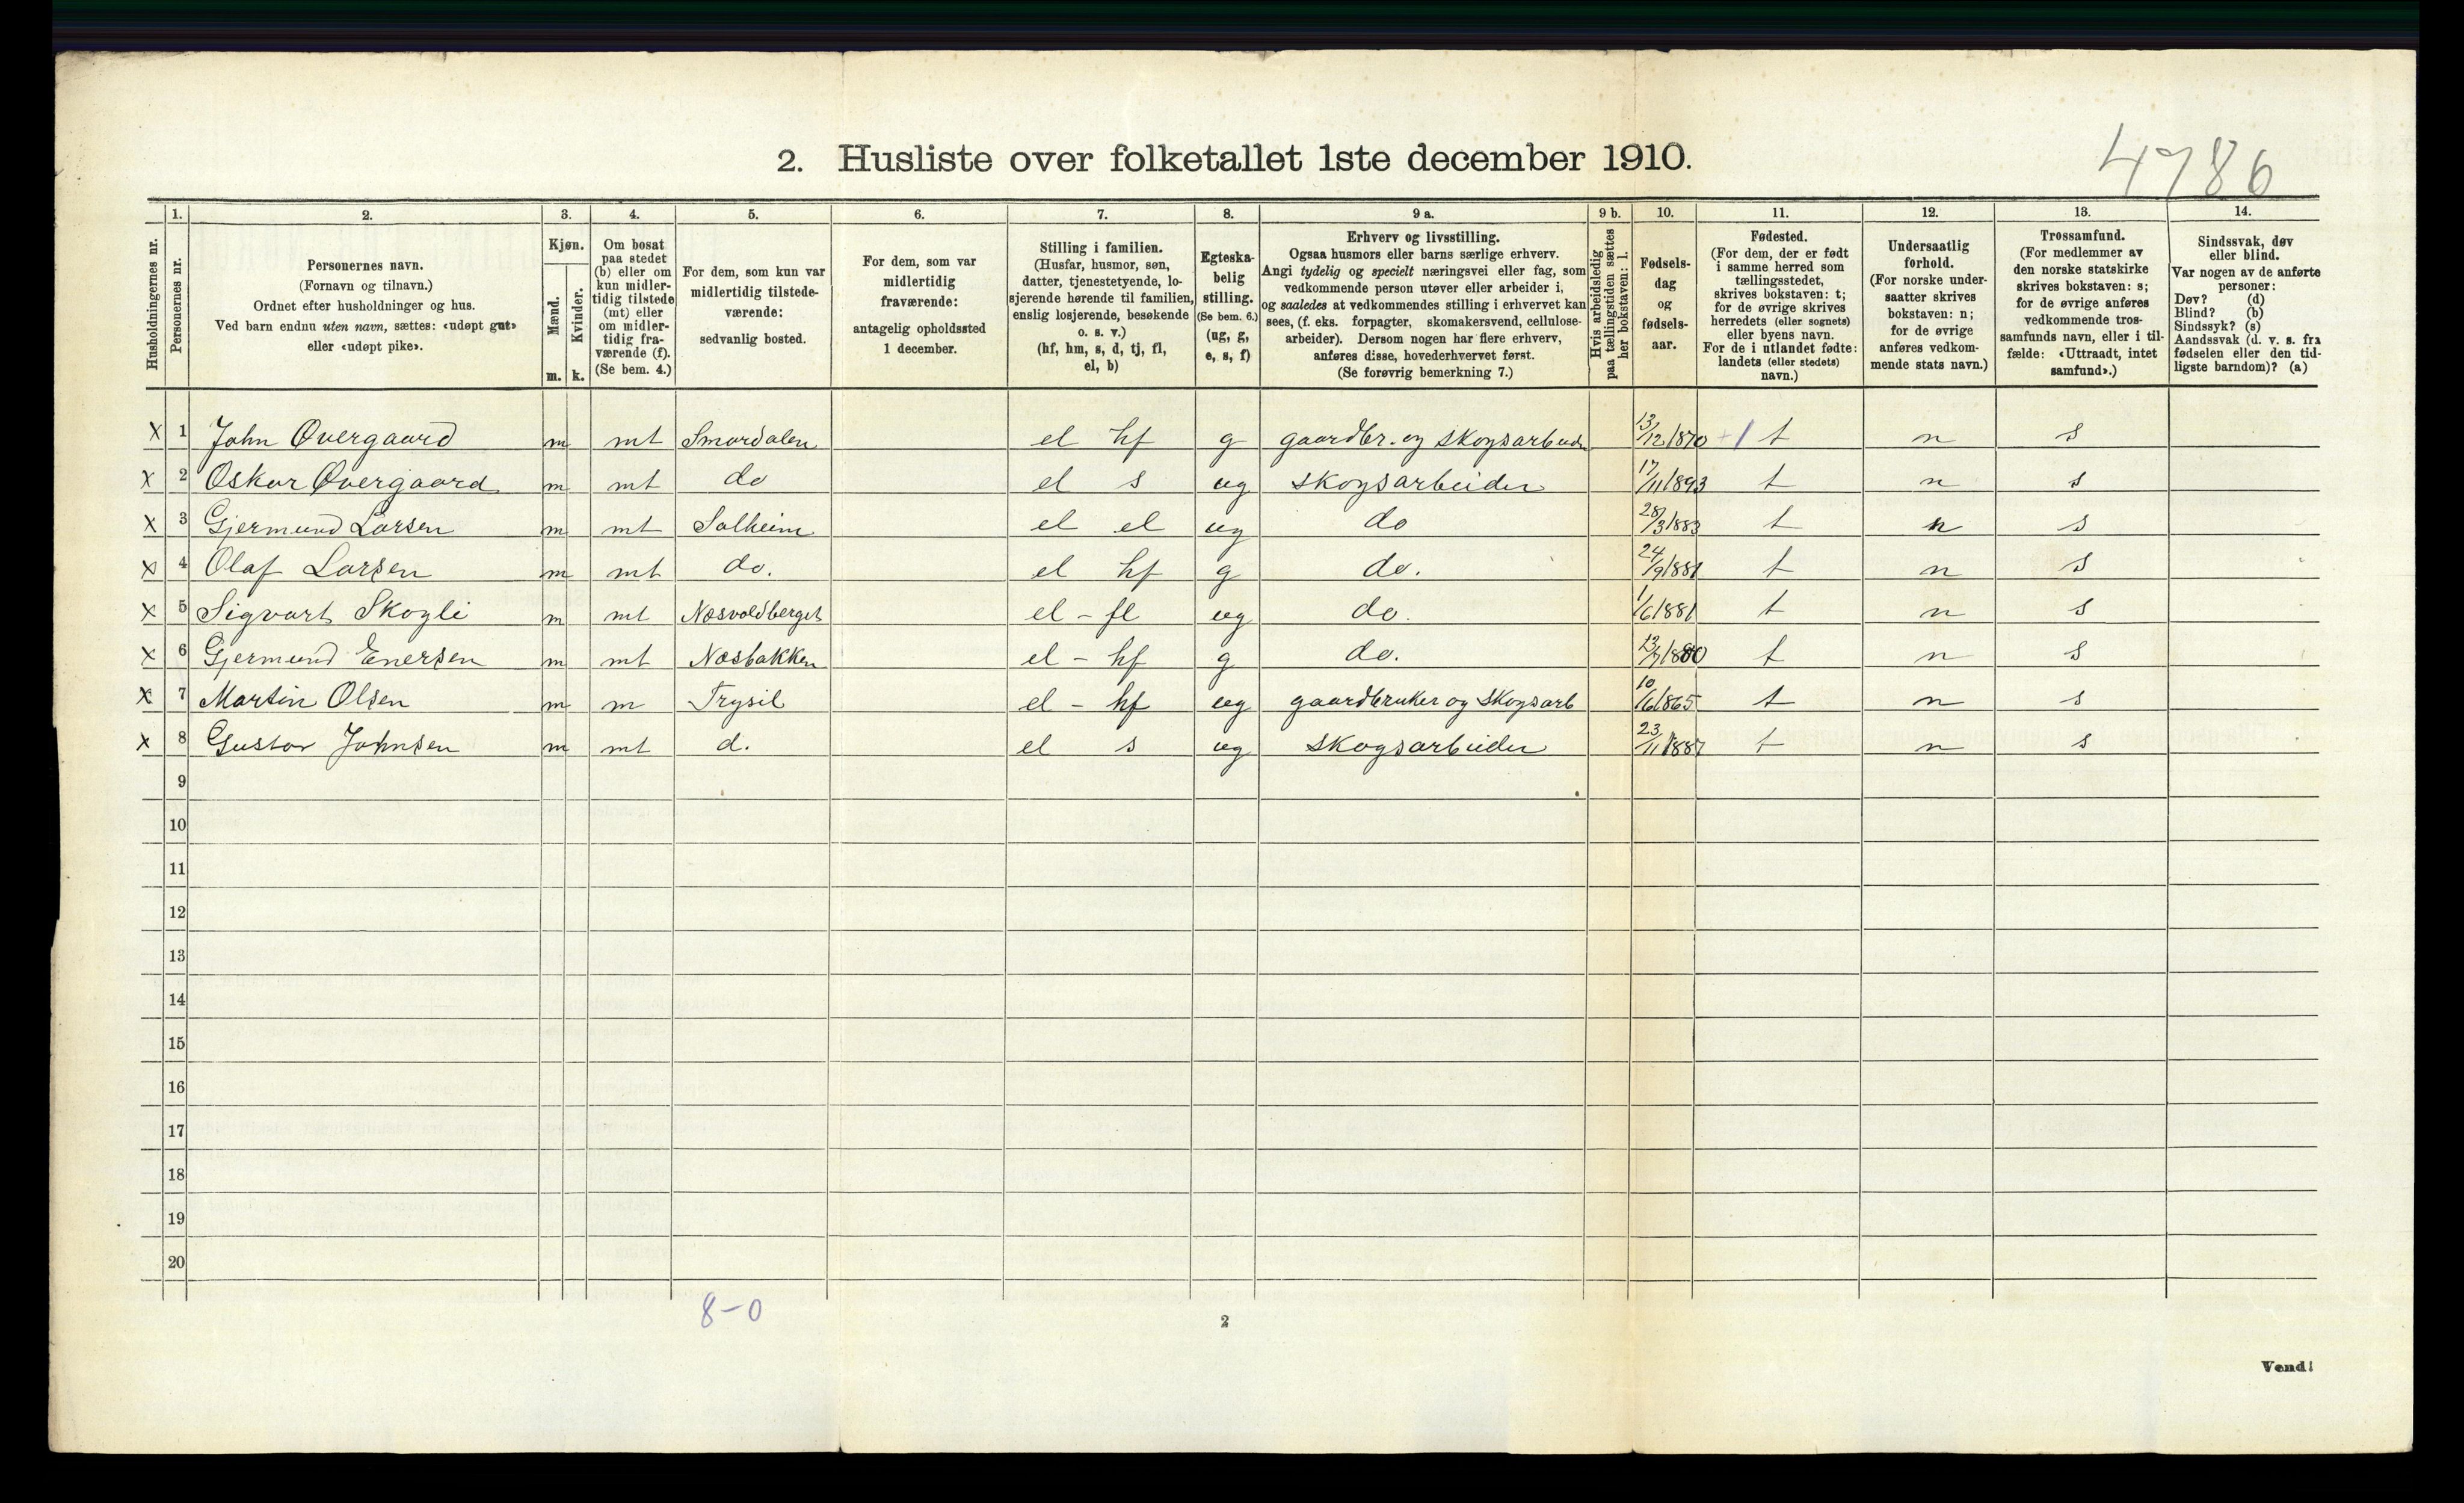 4786
2. Husliste over folketallet 1ste december 1910.
1. 2. 3. 4. 5. 6. 7. 8. 9 a. 9 b. 10. 11. 12. 13. 14.
Husholdningernes nr.
Personernes nr.
Personernes navn.
(Fornavn og tilnavn.)
Ordnet efter husholdninger og hus.
Ved barn endnu uten navn, sættes: «udøpt gut»
eller «udøpt pike».
Kjøn.
Mænd.
Kvinder.
m. k.
Om bosat
paa stedet
(b) eller om
kun midler-
tidig tilstede
(mt) eller
om midler-
tidig fra-
værende (f).
(Se bem. 4.)
For dem, som kun var
midlertidig tilstede-
værende:
sedvanlig bosted.
For dem, som var
midlertidig
fraværende:
antagelig opholdssted
1 december.
Stilling i familien.
(Husfar, husmor, søn,
datter, tjenestetyende, lo-
sjerende hørende til familien,
enslig losjerende, besøkende
o. s. v.)
(hf, hm, s, d, tj, fl,
el, b)
Egteska-
belig
stilling.
(Se bem. 6.)
(ug, g,
e, s, f)
Erhverv og livsstilling.
Ogsaa husmors eller barns særlige erhverv.
Angi tydelig og specielt næringsvei eller fag, som
vedkommende person utøver eller arbeider i,
og saaledes at vedkommendes stilling i erhvervet kan
sees, (f. eks. forpagter, skomakersvend, cellulose-
arbeider). Dersom nogen har flere erhverv,
anføres disse, hovederhvervet først.
(Se forøvrig bemerkning 7.)
Hvis arbeidsledig
paa tællingstiden sættes
her bokstaven: l.
Fødsels-
dag
og
fødsels-
aar.
Fødested.
(For dem, der er født
i samme herred som
tællingsstedet,
skrives bokstaven: t;
for de øvrige skrives
herredets (eller sognets)
eller byens navn.
For de i utlandet fødte:
landets (eller stedets)
navn.)
Undersaatlig
forhold.
(For norske under-
saatter skrives
bokstaven: n;
for de øvrige
anføres vedkom-
mende stats navn.)
Trossamfund.
(For medlemmer av
den norske statskirke
skrives bokstaven: s;
for de øvrige anføres
vedkommende tros-
samfunds navn, eller i til-
fælde: «Uttraadt, intet
samfund».)
Sindssvak, døv
eller blind.
Var nogen av de anførte
personer:
Døv? (d)
Blind? (b)
Sindssyk? (s)
Aandssvak (d. v. s. fra
fødselen eller den tid-
ligste barndom)? (a)
x 1 John Øvergaard m mt Smordalen el hf g gaardbr. og skogsarbeider 13/12 1870 +1 t n s
x 2 Oskar Øvergaard m mt do el s ug skogsarbeider 17/11 1893 t n s
x 3 Gjermund Larsen m mt Solheim el el ug do 28/3 1883 t n s
x 4 Olaf Larsen m mt do. el hf g do. 24/9 1881 t n s
x 5 Sigvart Skogli m mt Næsvoldberget el - fl ug do. 1/6 1881 t n s
x 6 Gjermund Enersen m mt Næsbakken el - hf g do. t n s
x 7 Martin Olsen m m Trysil el - hf ug gaardbruker og skogsarb 10/6 1865 t n s
x 8 Gustav Johnsen m mt d. el s ug skogsarbeider 23/11 1887 t n s
9
10
11
12
13
14
15
16
17
18
19
20
8-0
2
Vend!